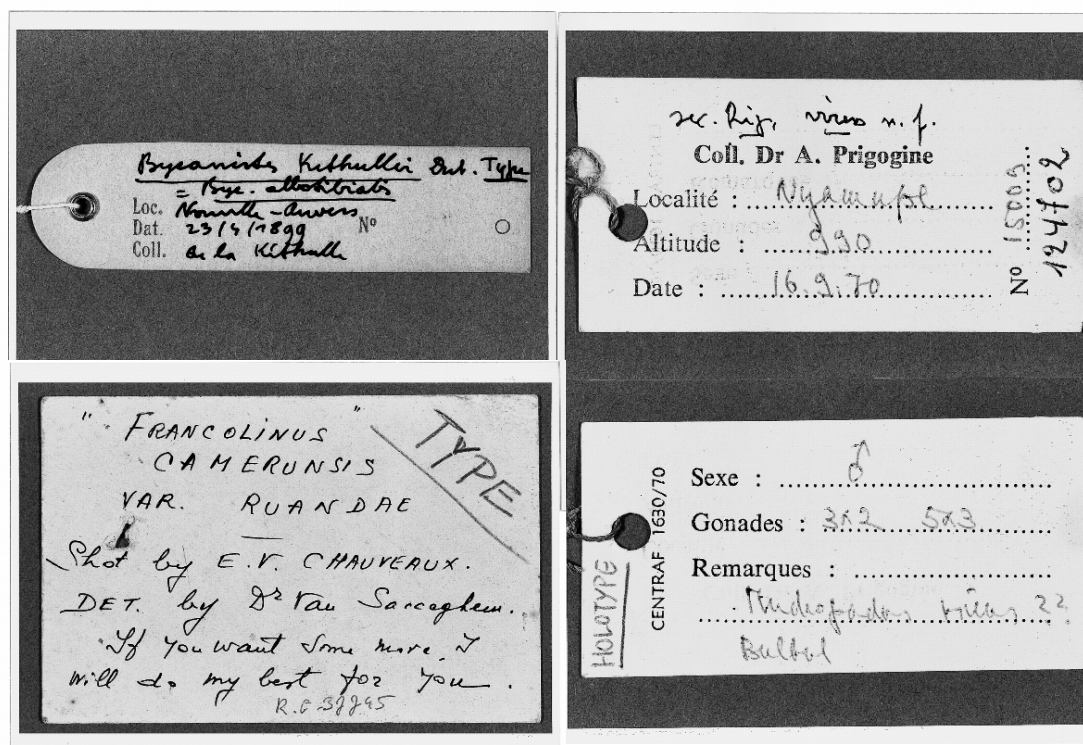 Bycanistes Kethulli Dub. Type
= Byc. albotibialis
Loc. Nouvelle-Anvers
Dat. 23/4/1899 Nº
Coll. de la Kéthulle
"FRANCOLINUS"
CAMERUNSIS
VAR. RUANDAE
TYPE
Shot by E.V. CHAUVEAUX.
DET. by Dr Van Saceghem.
If you want some more, I
will do my best for you.
R.G 37745
virens n. f.
Coll. Dr A. Prigogine
Localité : Nyamupe
Altitude : 990
Date : 16.9.70
Nº 15009
124702
Sexe : ♂
Gonades : 3x2 5x3
Remarques :
virens ??
Bulbul
HOLOTYPE
CENTRAF - 1630/70